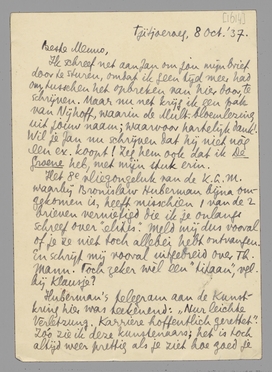 [1514]
Tjitjoeroeg, 8 Oct. '37.
Beste Menno,
Ik schreef net aan Jan om jou mijn brief
door te sturen, omdat ik geen tijd meer had
om tusschen het opbreken van hier door te
schrijven. Maar nu net krijg ik een pak
van Nijhoff, waarin de Mult.-bloemlezing
uit jouw naam; waarvoor hartelijk dank!
Wil je Jan nu schrijven dat hij niet nóg
een ex. koopt? Zeg hem ook dat ik De
Groene heb, met mijn stuk erin.
Het vliegongeluk van de K.L.M.
waarbij Bronislaw Huberman bijna om-
gekomen is, heeft misschien 1 van de 2
brieven vernietigd die ik je onlangs
schreef over "ethos". Meld mij dus vooral
of je ze niet toch allebei hebt ontvangen.
En schrijf mij vooral uitgebreid over Th.
Mann. Toch zeker wel een "titaan", vgl.
bij Klausje?
Huberman's telegram aan de Kunst-
kring hier was teekenend: "Nur leichte
Verletzung. Karriere hoffentlich gerettet".
Zóó zie ik de kunstenaars; het is toch
altijd weer prettig als je ziet hoe goed je